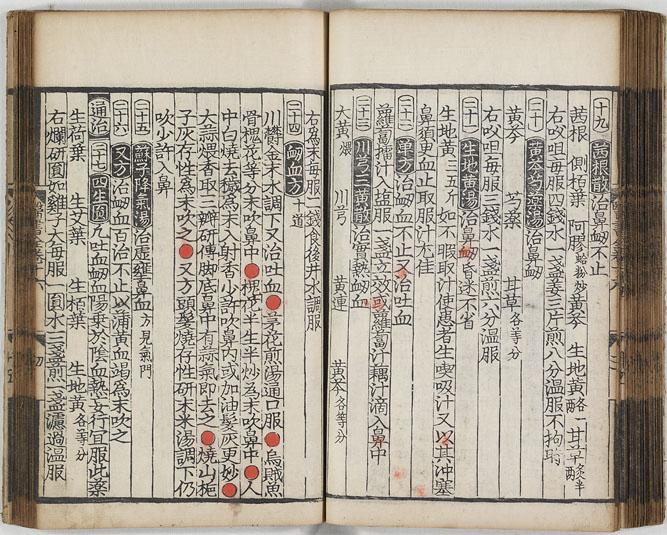 十九 茜根散 治鼻衄不止
茜根 側栢葉 阿膠蛤粉炒 黃芩 生地黃 甘草炙半
右㕮咀每服四錢水一盞姜三片煎八分溫服不拘時
二十 黃芩芍藥湯 治鼻衄
黃芩 芍藥 甘草各等分
右㕮咀每服三錢水一盞煎六分溫服
二十一 生地黃湯 治鼻衄昏迷不省
生地黃三五斤如不暇取汁使患者生喫吸汁又以其滓塞
鼻須臾血止取服汁尤佳
二十二 單方 治衄血不止又治吐血
蘿蔔擂汁入盐服一盞立效或蘿蔔汁藕汁滴入鼻中
二十三 川芎三黃散 治實熱衄血
大黃煨 川芎 黃連 黃芩各等分
右爲末每服一錢食後井水調服
二十四 衄血方 十道
川鬱金末水調下又治吐血 茅花煎湯通口服 烏賊魚
骨槐花等分末吹鼻中 槐花半生半炒爲末吹鼻中 人
中白燒去穢爲末入射香少許吹鼻內或加油髮灰更妙
大蒜煨香取三瓣研傅脚底鼻中有蒜氣即去之 燒山梔
子灰存性爲末吹之 又方頭髮燒存性研末米湯調下仍
吹少許入鼻
二十五 蘇子降氣湯 治虛壅鼻血 方見氣門
二十六 又方 治衄血百治不止以蒲黃血竭爲末吹之
通治 二十七 四生圓 凡吐血衄血陽乘於陰血熱妄行宜服此藥
生荷葉 生艾葉 生栢葉 生地黃各等分
右爛研圓如雞子大每服一圓水三盞煎一盞濾過溫服